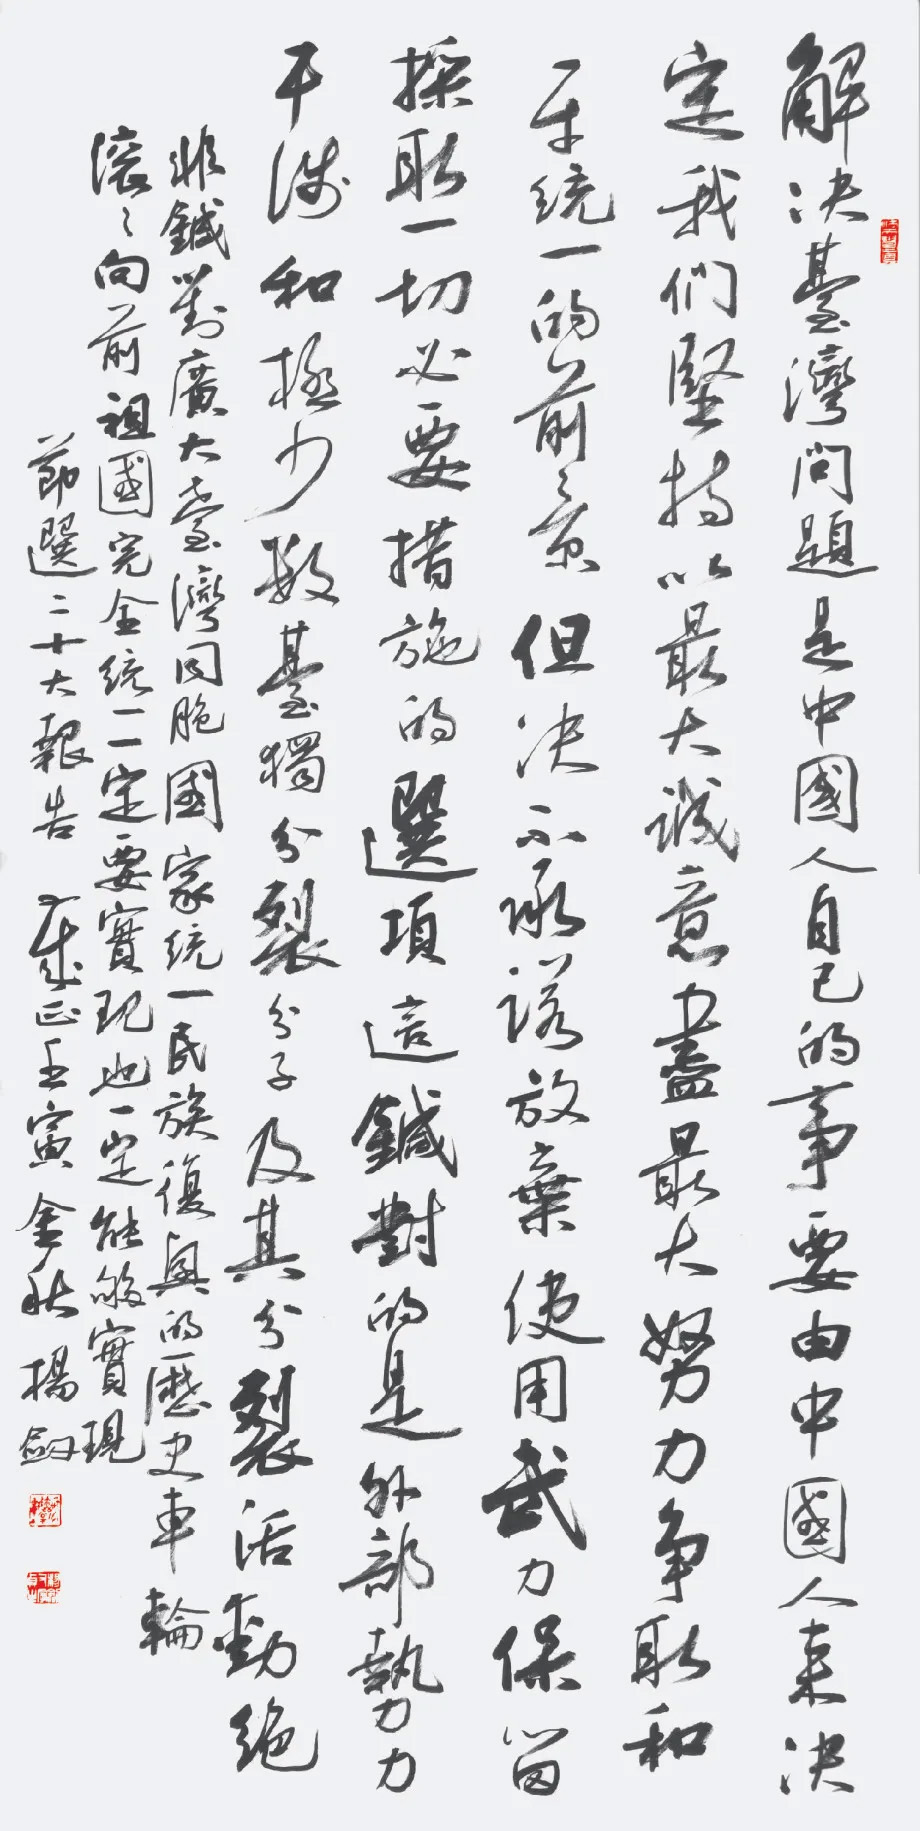 解决臺灣問題是中國人自己的事要由中國人来决
定我們堅持以最大誠意盡最大努力争取和
平统一的前景但决不承諾放棄使用武力保留
採取一切必要措施的選項這鍼對的是外部勢力
干涉和極少数臺獨分裂分子及其分裂活動绝
非鍼對廣大臺灣同胞國家统一民族復興的歷史車輪
滚々向前祖國完全统一一定要實现也一定能够實現
節選二十大報告 歲壬寅金秋楊劍